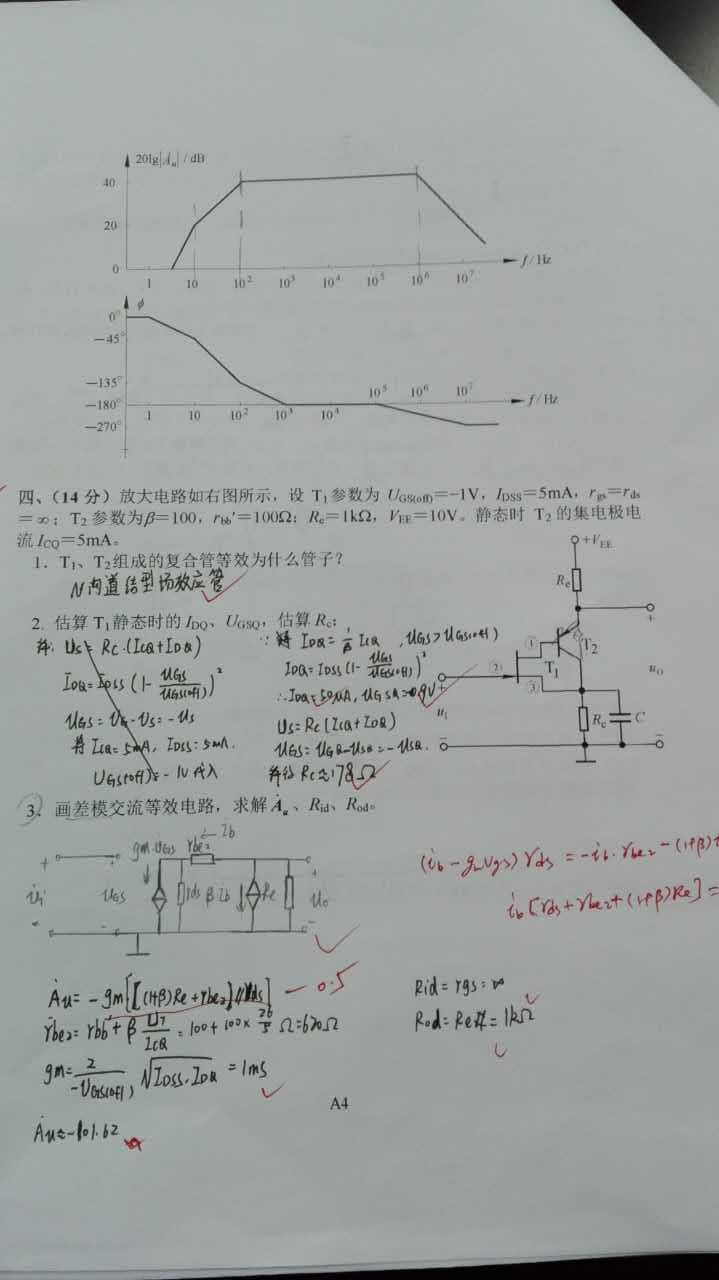 20lg|Ȧu| / dB
40
20
0
1 10 10² 10³ 10⁴ 10⁵ 10⁶ 10⁷ f / Hz
ϕ
0°
−45°
−135°
−180°
−270°
10⁵ 10⁶ 10⁷ f / Hz
1 10 10² 10³ 10⁴
四、(14 分) 放大电路如右图所示，设 T₁参数为 UGS(off)=−1V，IDSS=5mA，rgs=rds
=∞；T₂参数为β=100，rbb′=100Ω；Re=1kΩ，VEE=10V。静态时 T₂的集电极电
流 ICQ=5mA。
1．T₁、T₂组成的复合管等效为什么管子？
N沟道结型场效应管
2. 估算 T₁静态时的 IDQ、UGSQ，估算 Rc；
Us = Rc·(ICQ+IDQ)
IDQ = IDSS (1 - UGS/UGS(off))²
UGS = UG - US = -US
ICQ = 5mA, IDSS = 5mA.
UGS(off) = -1V 代入
IDQ = 1/β ICQ , UGS > UGS(off)
IDQ = IDSS (1 - UGS/UGS(off))²
∴ IDQ = 50μA, UGSQ = -0.9V
US = Rc (ICQ + IDQ)
UGS = UGQ - USQ = -USQ.
Rc ≈ 178Ω
+VEE
Re
+
① T₂
② T₁
③
+
uI
−
uO
Rc C
−
3．画差模交流等效电路，求解Ȧu、Rid、Rod。
gm·UGS rbe2 ← Ib
+ + +
Ui UGS rds βIb Re Uo
- - -
(ib - gmVgs) rds = -ib·rbe2 - (1+β)
ib [rds + rbe2 + (1+β)Re] =
Ȧu = -gm{[(1+β)Re + rbe2] // rds} - 0.5
rbe2 = rbb' + β UT/ICQ = 100 + 100 × 26/5 Ω = 620Ω
gm = 2/-UGS(off) √IDSS·IDQ = 1ms
Ȧu ≈ -101.62
Rid = rgs = ∞
Rod = Re = 1kΩ
A4